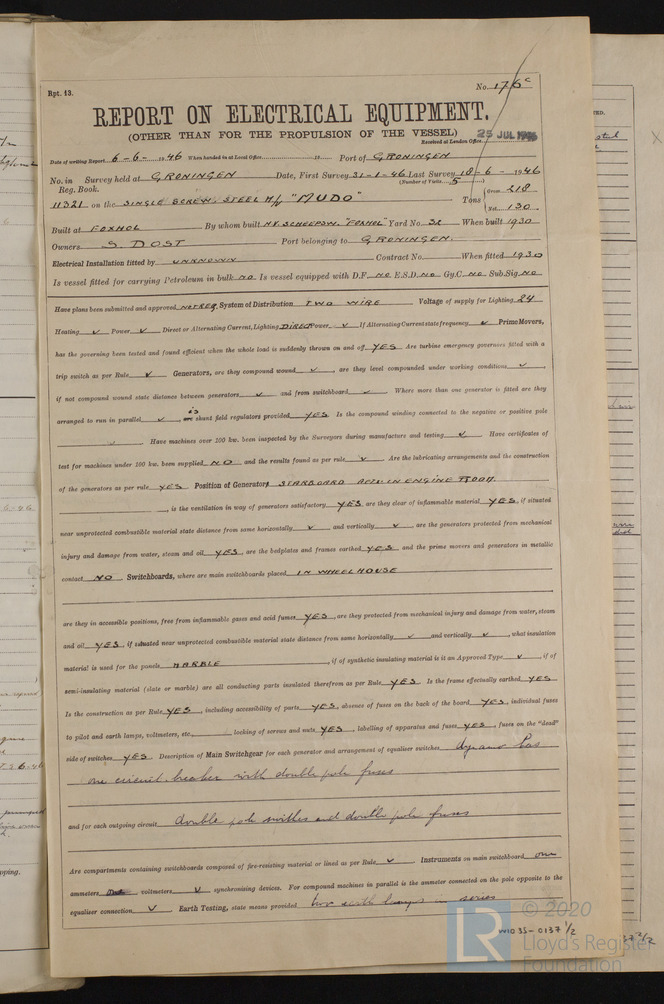 Rpt. 13.
No. 176c
REPORT ON ELECTRICAL EQUIPMENT.
(OTHER THAN FOR THE PROPULSION OF THE VESSEL)
25 JUL 1946
Received at London Office
Date of writing Report 6-6-1946 When handed in at Local Office 19 Port of GRONINGEN
No. in Survey held at GRONINGEN Date, First Survey 31-1-46 Last Survey 18-6-1946
Reg. Book. (Number of Visits 5)
11321 on the SINGLE SCREW STEEL M/V "MUDO" Tons Gross 218 Net 130
Built at FOXHOL By whom built N.V. SCHEEPSW. "FOXHOL" Yard No. 32 When built 1930
Owners S. DOST Port belonging to GRONINGEN.
Electrical Installation fitted by UNKNOWN Contract No. When fitted 1930
Is vessel fitted for carrying Petroleum in bulk NO Is vessel equipped with D.F. NO E.S.D. NO Gy.C. NO Sub.Sig. NO
Have plans been submitted and approved NOT REQ. System of Distribution TWO WIRE Voltage of supply for Lighting 24
Heating ✓ Power ✓ Direct or Alternating Current, Lighting DIRECT Power ✓ If Alternating Current state frequency ✓ Prime Movers,
has the governing been tested and found efficient when the whole load is suddenly thrown on and off YES Are turbine emergency governors fitted with a
trip switch as per Rule ✓ Generators, are they compound wound ✓, are they level compounded under working conditions ✓,
if not compound wound state distance between generators ✓ and from switchboard ✓ Where more than one generator is fitted are they
arranged to run in parallel ✓, is shunt field regulators provided YES Is the compound winding connected to the negative or positive pole
✓ Have machines over 100 kw. been inspected by the Surveyors during manufacture and testing ✓ Have certificates of
test for machines under 100 kw. been supplied NO and the results found as per rule ✓ Are the lubricating arrangements and the construction
of the generators as per rule YES Position of Generators STARBOARD IN ENGINE ROOM
, is the ventilation in way of generators satisfactory YES are they clear of inflammable material YES, if situated
near unprotected combustible material state distance from same horizontally ✓ and vertically ✓ are the generators protected from mechanical
injury and damage from water, steam and oil YES, are the bedplates and frames earthed YES and the prime movers and generators in metallic
contact NO Switchboards, where are main switchboards placed IN WHEELHOUSE
are they in accessible positions, free from inflammable gases and acid fumes YES, are they protected from mechanical injury and damage from water, steam
and oil YES, if situated near unprotected combustible material state distance from same horizontally ✓ and vertically ✓, what insulation
material is used for the panels MARBLE, if of synthetic insulating material is it an Approved Type ✓, if of
semi-insulating material (slate or marble) are all conducting parts insulated therefrom as per Rule YES Is the frame effectually earthed YES
Is the construction as per Rule YES, including accessibility of parts YES, absence of fuses on the back of the board YES, individual fuses
to pilot and earth lamps, voltmeters, etc. locking of screws and nuts YES, labelling of apparatus and fuses YES, fuses on the "dead"
side of switches YES Description of Main Switchgear for each generator and arrangement of equaliser switches dynamo has
one circuit breaker with double pole fuses
and for each outgoing circuit double pole switches and double pole fuses
Are compartments containing switchboards composed of fire-resisting material or lined as per Rule ✓ Instruments on main switchboard one
ammeters voltmeters ✓ synchronising devices. For compound machines in parallel is the ammeter connected on the pole opposite to the
equaliser connection ✓ Earth Testing, state means provided two earth lamps in series
© 2020
LR
Lloyd's Register
Foundation
W1035-0137 1/2